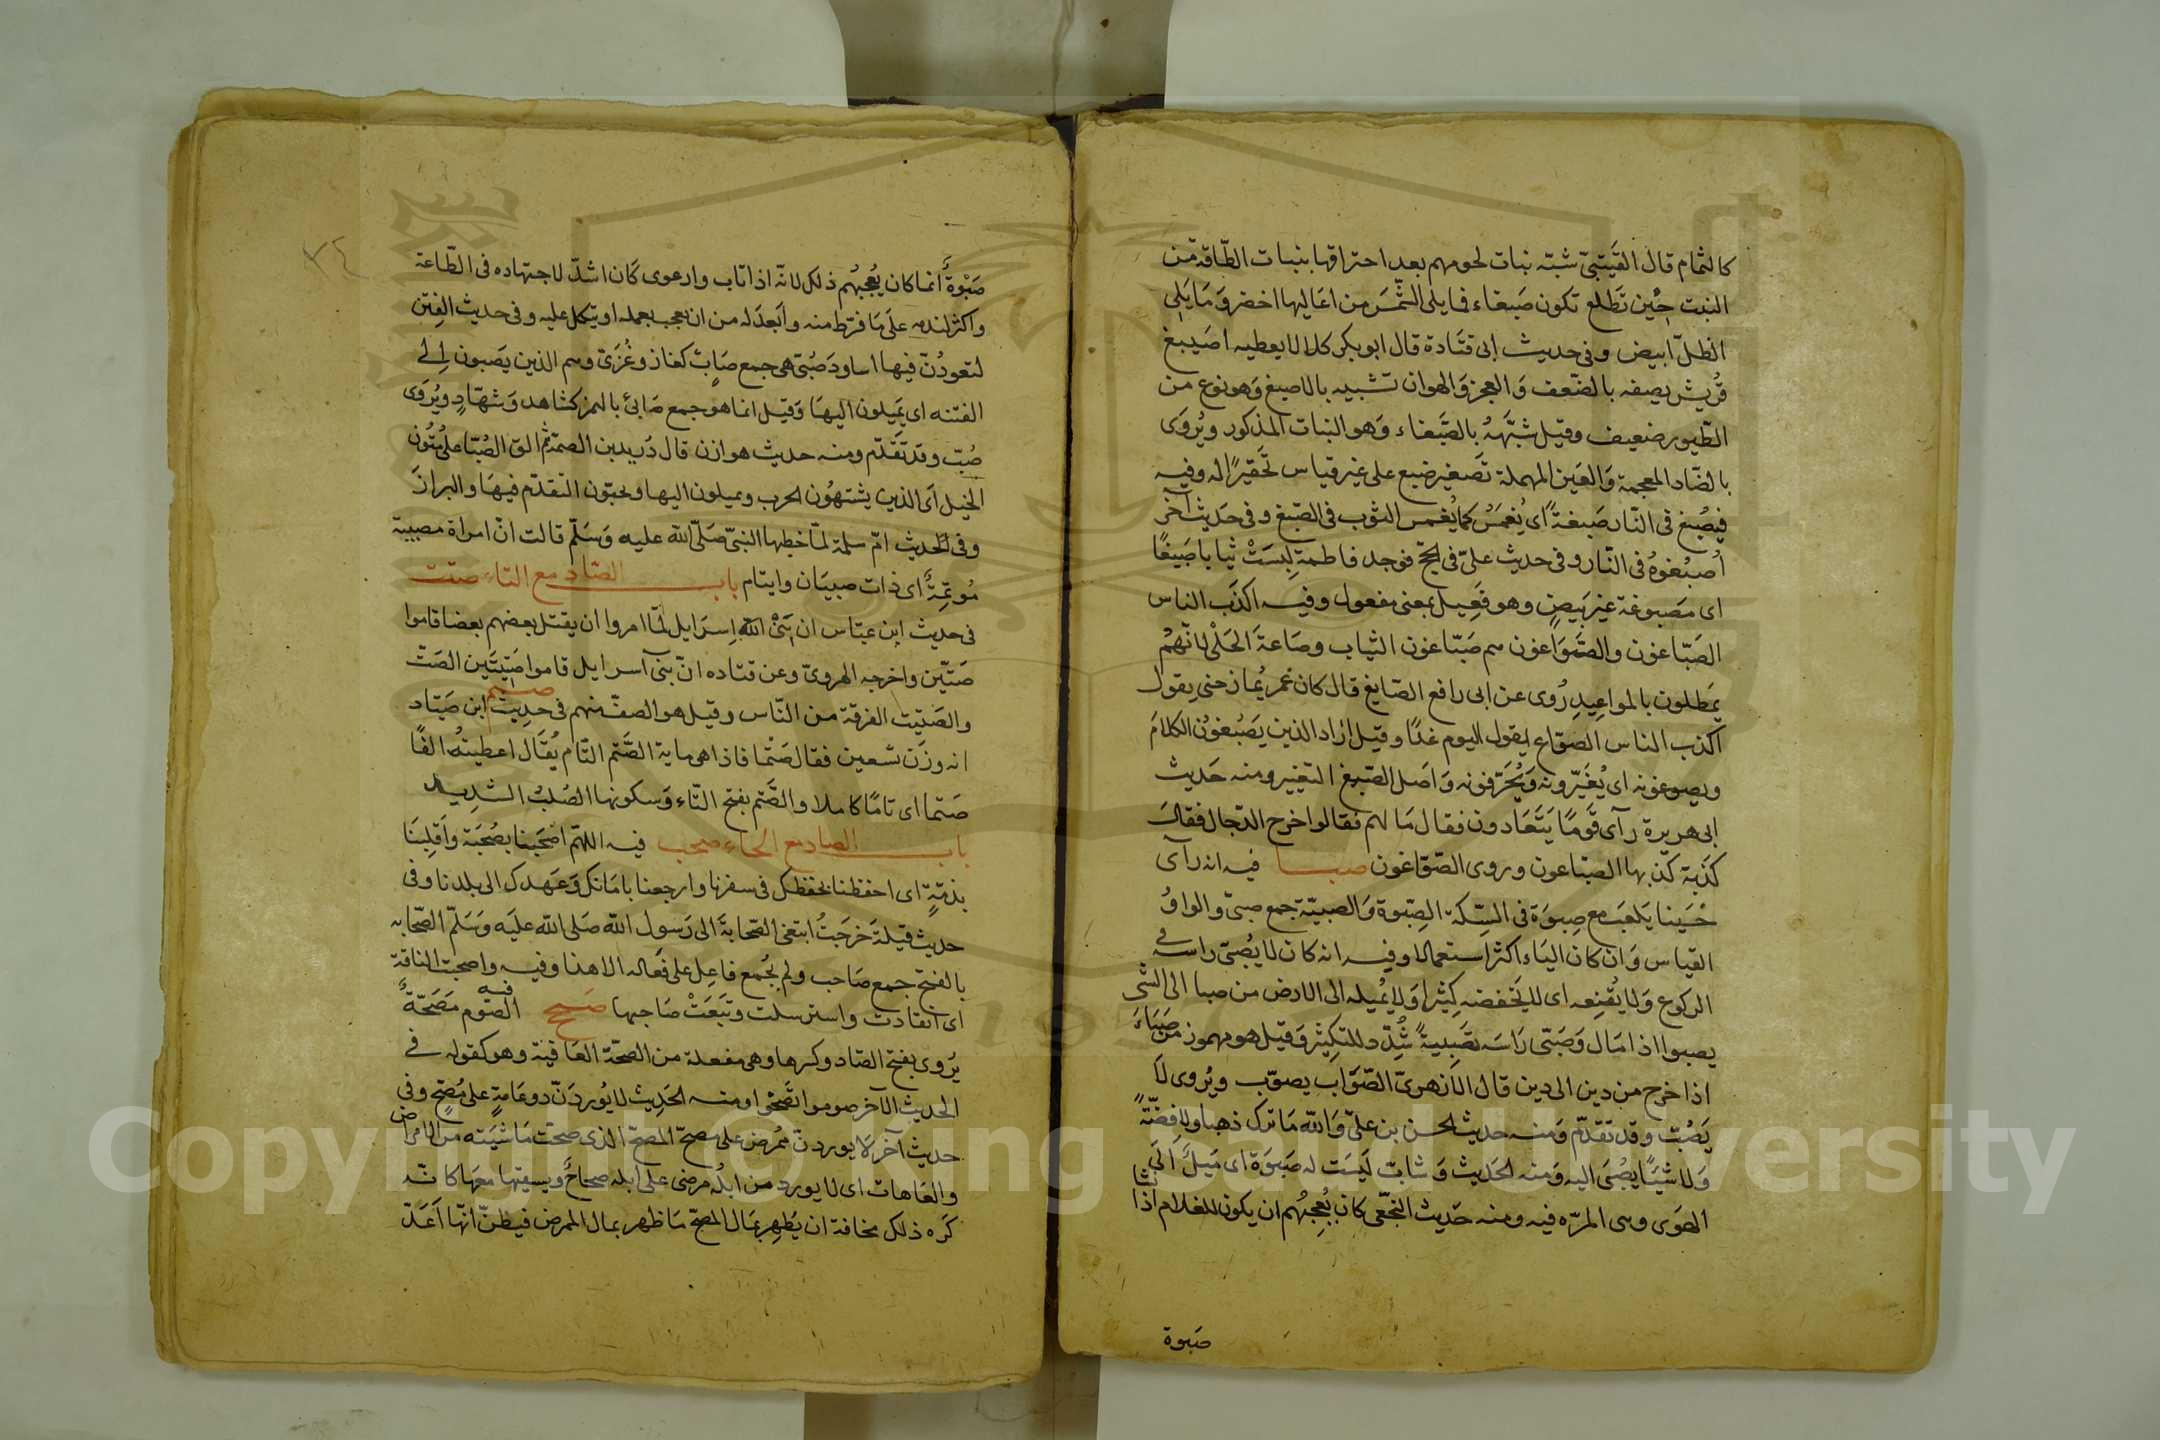 كالثمام قال القتيبي شبّه نبات لحومهم بعد احتراقها بنبات الطّاقة من
النبت حين تطلع تكون صبغاء فما يلي الشمس من اعاليها اخضر وما يلي
الظلّ ابيض وفي حديث ابي قتادة قال ابو بكر كلا لا يعطيه اصيبغ
قريش يصفه بالضّعف والعجز والهوان تشبيه بالاصبغ وهو نوع من
الطّيور ضعيف وقيل شبّهه بالصّبغاء وهو النبات المذكور ويُروى
بالضّاد المعجمة والعين المهملة تصغير ضبع على غير قياس تحقيرًا له وفيه
فيصبغ في النّار صبغةً اي يُغمس كما يُغمس الثوب في الصّبغ وفي حديث آخر
اُصبُغوهُ في النّار وفي حديث عليّ في الحجّ فوجد فاطمة لبست ثيابا صبيغًا
اى مصبوغة غير بيض وهو فعيل بمعنى مفعول وفيه اكذب الناس
الصبّاغون والصوّاغون هم صبّاغون الثياب وصاغة الحلي لانّهم
يمطلون بالمواعيد رُوى عن ابى رافع الصايغ قال كان عمر يُمازحني يقول
اكذب الناس الصوّاغ يقول اليوم غدًا وقيل اراد الذين يصبغون الكلام
ويصوغونه اى يُغيّرونه ويُحرّفونه واصل الصّبغ التغيير ومنه حديث
ابي هريرة رآى قومًا يتعادون فقال ما لهم فقالوا خرج الدّجال فقال
كذبة كذّبها الصبّاغون وروى الصّوّاغون صبا فيه انه رآى
حُسينا يلعب مع صِبوة في السّكة الصِّبوة والصبيّة جمع صبيّ والواوُ
القياس وان كان الياء اكثر استعمالا وفيه انه كان لا يُصبّى راسه في
الركوع ولا يُقنِعه اى لا يخفضه كثيرًا ولا يُميله الى الارض من صبا الى الشى
يصبوا اذا مال وصبّى راسه تصبيةً شُدّد للتكثير وقيل هو مهموز من صباءَ
اذا خرج من دين الى دين قال الازهرىّ الصّواب يصوّب ويُروى لا
يَصُبّ وقد تقدّم ومنه حديث الحسن بن عليّ والله ما ترك ذهبا ولا فضّةً
ولا شيئًا يُصبى اليه ومنه الحديث وشابّ ليست له صبوة اى ميلٌ الى
الهوى وهى المرّه فيه ومنه حديث النخّعى كان يُعجبُهم ان يكون للغلام اذا نشا
صبوة
صَبْوةٌ انما كان يُعجبهم ذلك لانّه اذا تاب وارعوى كان اشدّ لاجتهاده في الطّاعة
واكثر لندمه على ما فرّط منه وابعد له من ان يعجب بعمله او يتكل عليه وفي حديث الفتن
لتعودُنّ فيها اساود صُبّى هى جمع صابٍ كغاز وغُزّى وهم الذين يصبون الى
الفتنه اى يميلون اليها وقيل انما هو جمع صابئ بالهمز كشاهد وشهّادٍ ويُروى
صُبّ وقد تقدّم ومنه حديث هوازن قال دُريد بن الصمّة ثم الق الصُبّا على مُتُون
الخيل اى الذين يشتهون الحرب ويميلون اليها ويحبّون التقدّم فيها والبراز
وفي الحديث امّ سلمة لمّا خطبها النبيّ صلّى الله عليه وسلّم قالت انّ امراة مصبية
مُوتمةٌ اى ذات صبيان وايتام باب الصّاد مع التاء صتت
في حديث ابن عبّاس ان بنى اسرايل لمّا امروا ان يقتل بعضهم بعضا قاموا
صَتّين واخرجه الهروىّ وعن قتاده انّ بنى اسرايل قاموا صتيتين الصّتّ
والصّتيت الفرقة من النّاس وقيل هو الصفّ منهم صتم في حديث ابن صيّاد
انه وزن تسعين فقال صَتْما فاذا هي ماية الصَّتم التّام يُقال اعطيتُه الفًا
صَتما اى تامًا كاملا والصَّتم بفتح التّاء وسكونها الصُلب الشديد
باب الصاد مع الحاء صحب فيه اللهمّ اصحبنا بصُحبة واقلبنا
بذمّةٍ اى احفظنا بحفظك في سفرنا وارجعنا بامانك وعهدك الى بلدنا وفي
حديث قيلة خرجتُ ابتغى الصّحابة الى رسول الله صلى الله عليه وسلّم الصّحابه
بالفتح جمع صاحب ولم يُجمع فاعِل على فَعاله الا هذا وفيه واصحبت الناقة
اى انقادت واسترسلت وتبعَتْ صاحبها صحح فيه الصّوم مَصَحّةٌ
يُروى بفتح الصّاد وكسرها وهى مفعلة من الصحّة العافية وهو كقوله في
الحديث الآخر صوموا تصحّوا ومنه الحديث لا يُوردَنّ ذو عاهةٍ على مُصحٍّ وفي
حديث آخر لا يوردنّ ممُرض على مصحّ المصحّ الذى صحّت ماشيته من الامراض
والعاهات اى لا يورد من ابلُه مرضى على ابله صحاحٌ ويسقيها معها كانّه
كَره ذلك مخافة ان يَظهر بمال المصحّ ما ظهر بمال الممرض فيظنّ انّها اَعدَت
٧٤
Copyright © King Saud University
1957